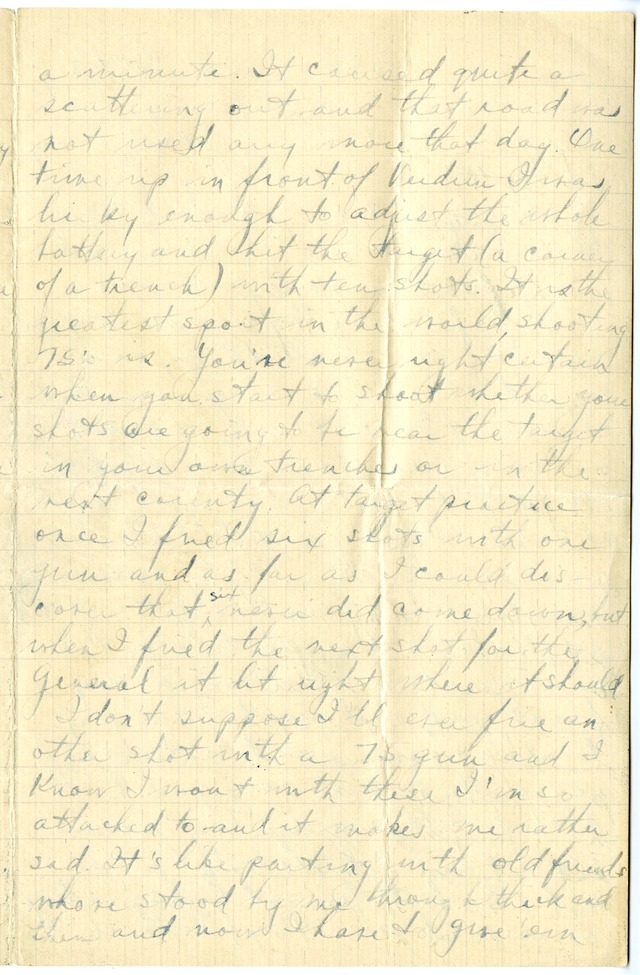 a minute. It caused quite a
scattering out and that road was
not used any more that day. One
time up in front of Verdun I was
lucky enough to adjust the whole
battery and hit the target (a corner
of a trench) with ten shots. It is the
greatest sport in the world, shooting
75s is. You're never right certain
when you start to shoot whether your
shots are going to be near the target
in your own trenches or in the
next county. At target practice
once I fired six shots with one
gun and as far as I could dis-
cover that six never did come down, but
when I fired the next shot for the
General it lit right where it should
I don't suppose I'll ever fire an
other shot with a 75 gun and I
Know I wont with these I'm so
attached to and it makes me rather
sad. It's like parting with old friends
who've stood by me through thick and
thin and now I have to give 'em